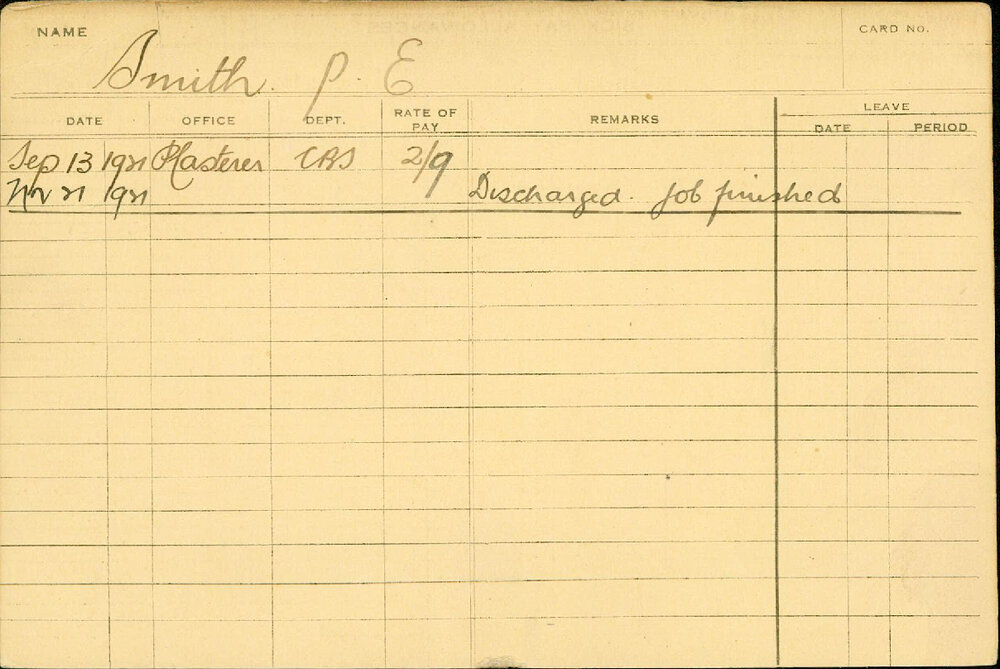 NAME
CARD No.
Smith. P. E
LEAVE
DATE OFFICE DEPT. RATE OF PAY REMARKS DATE PERIOD
Sep 13 1921 Plasterer CAS 2/9
Nov 21 1921 Discharged. Job finished